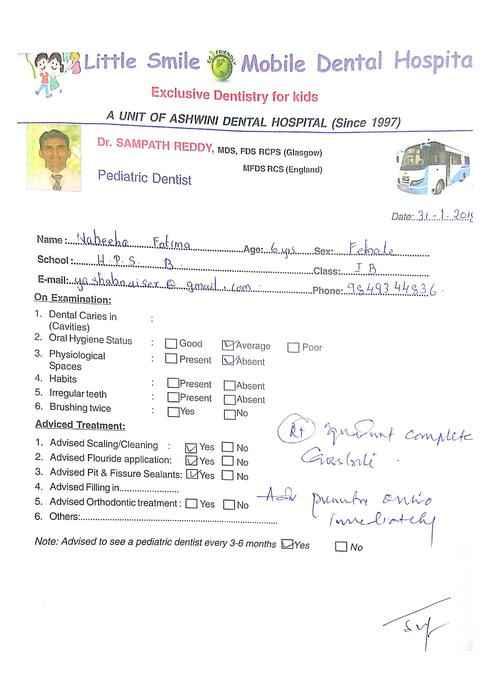 Little Smile Mobile Dental Hospita
Exclusive Dentistry for kids
A UNIT OF ASHWINI DENTAL HOSPITAL (Since 1997)
Dr. SAMPATH REDDY, MDS, FDS RCPS (Glasgow)
MFDS RCS (England)
Pediatric Dentist
Date: 31-1-201
Name: Nabeeha Fatima Age: 6 yrs Sex: Female
School: H.P.S. B Class: I B
E-mail: @ gmail.com Phone: 9849344836
On Examination:
1. Dental Caries in :
(Cavities)
2. Oral Hygiene Status : Good Average Poor
3. Physiological : Present Absent
Spaces
4. Habits : Present Absent
5. Irregular teeth : Present Absent
6. Brushing twice : Yes No
Adviced Treatment:
1. Advised Scaling/Cleaning : Yes No
2. Advised Flouride application: Yes No
3. Advised Pit & Fissure Sealants: Yes No
4. Advised Filling in
5. Advised Orthodontic treatment : Yes No
6. Others:
Rt complete
immediately
Note: Advised to see a pediatric dentist every 3-6 months Yes No